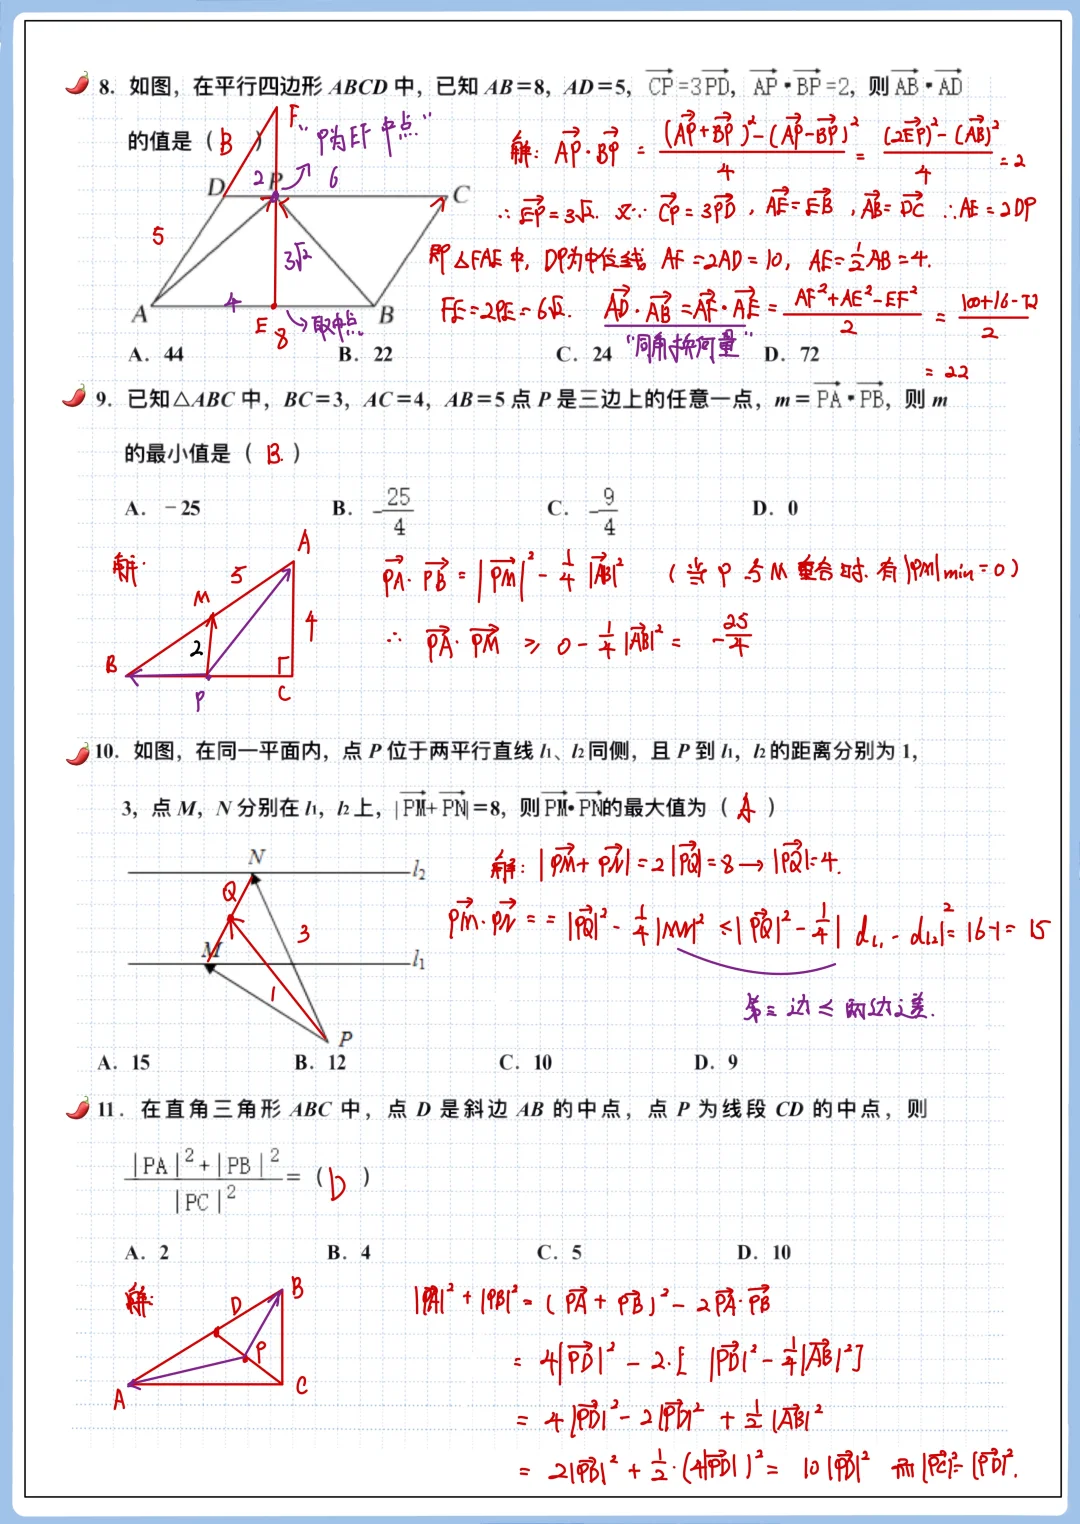 8. 如图，在平行四边形 ABCD 中，已知 AB＝8，AD＝5，CP=3PD，AP·BP=2，则 AB·AD
的值是（ B ）
F "P为EF中点"
解：AP·BP = (AP+BP)²-(AP-BP)²/4 = (2EP)²-(AB)²/4 = 2
D 2 P 6 C
∴ EP=3√2. 又∵ CP=3PD, AE=EB, AB=DC ∴AE=2DP
5 3√2
即△FAE中, DP为中位线 AF=2AD=10, AE=½AB=4.
A 4 E B
FE=2PE=6√2. AD·AB=AF·AE = AF²+AE²-EF²/2 = 100+16-72/2
8 取中点
"同角换向量"
= 22
A．44 B．22 C．24 D．72
9. 已知△ABC 中，BC＝3，AC＝4，AB＝5 点 P 是三边上的任意一点，m＝PA·PB，则 m
的最小值是（ B. ）
A．﹣25 B．-25/4 C．-9/4 D．0
解:
A 5 M 4 2 B P C
PA·PB = |PM|² - ¼|AB|² (当P与M重合时.有|PM|min=0)
∴ PA·PM ≥ 0-¼|AB|² = -25/4
10．如图，在同一平面内，点 P 位于两平行直线 l₁、l₂同侧，且 P 到 l₁，l₂的距离分别为 1，
3，点 M，N 分别在 l₁，l₂上，|PM+PN|＝8，则PM·PN的最大值为（ A ）
N l₂ Q 3 M l₁ 1 P
解: |PM+PN|=2|PQ|=8→|PQ|=4.
PM·PN = = |PQ|²-¼|MN|² ≤ |PQ|²-¼|dl₁-dl₂|²=16-1=15
第三边≤两边之差.
A．15 B．12 C．10 D．9
11．在直角三角形 ABC 中，点 D 是斜边 AB 的中点，点 P 为线段 CD 的中点，则
|PA|²+|PB|²/|PC|²=（ D ）
A．2 B．4 C．5 D．10
解:
B D P A C
|PA|²+|PB|²=(PA+PB)²-2PA·PB
= 4|PD|²-2·[|PD|²-¼|AB|²]
= 4|PD|²-2|PD|²+½|AB|²
= 2|PD|²+½·(4|PD|)²= 10|PD|² 而|PC|²=|PD|².